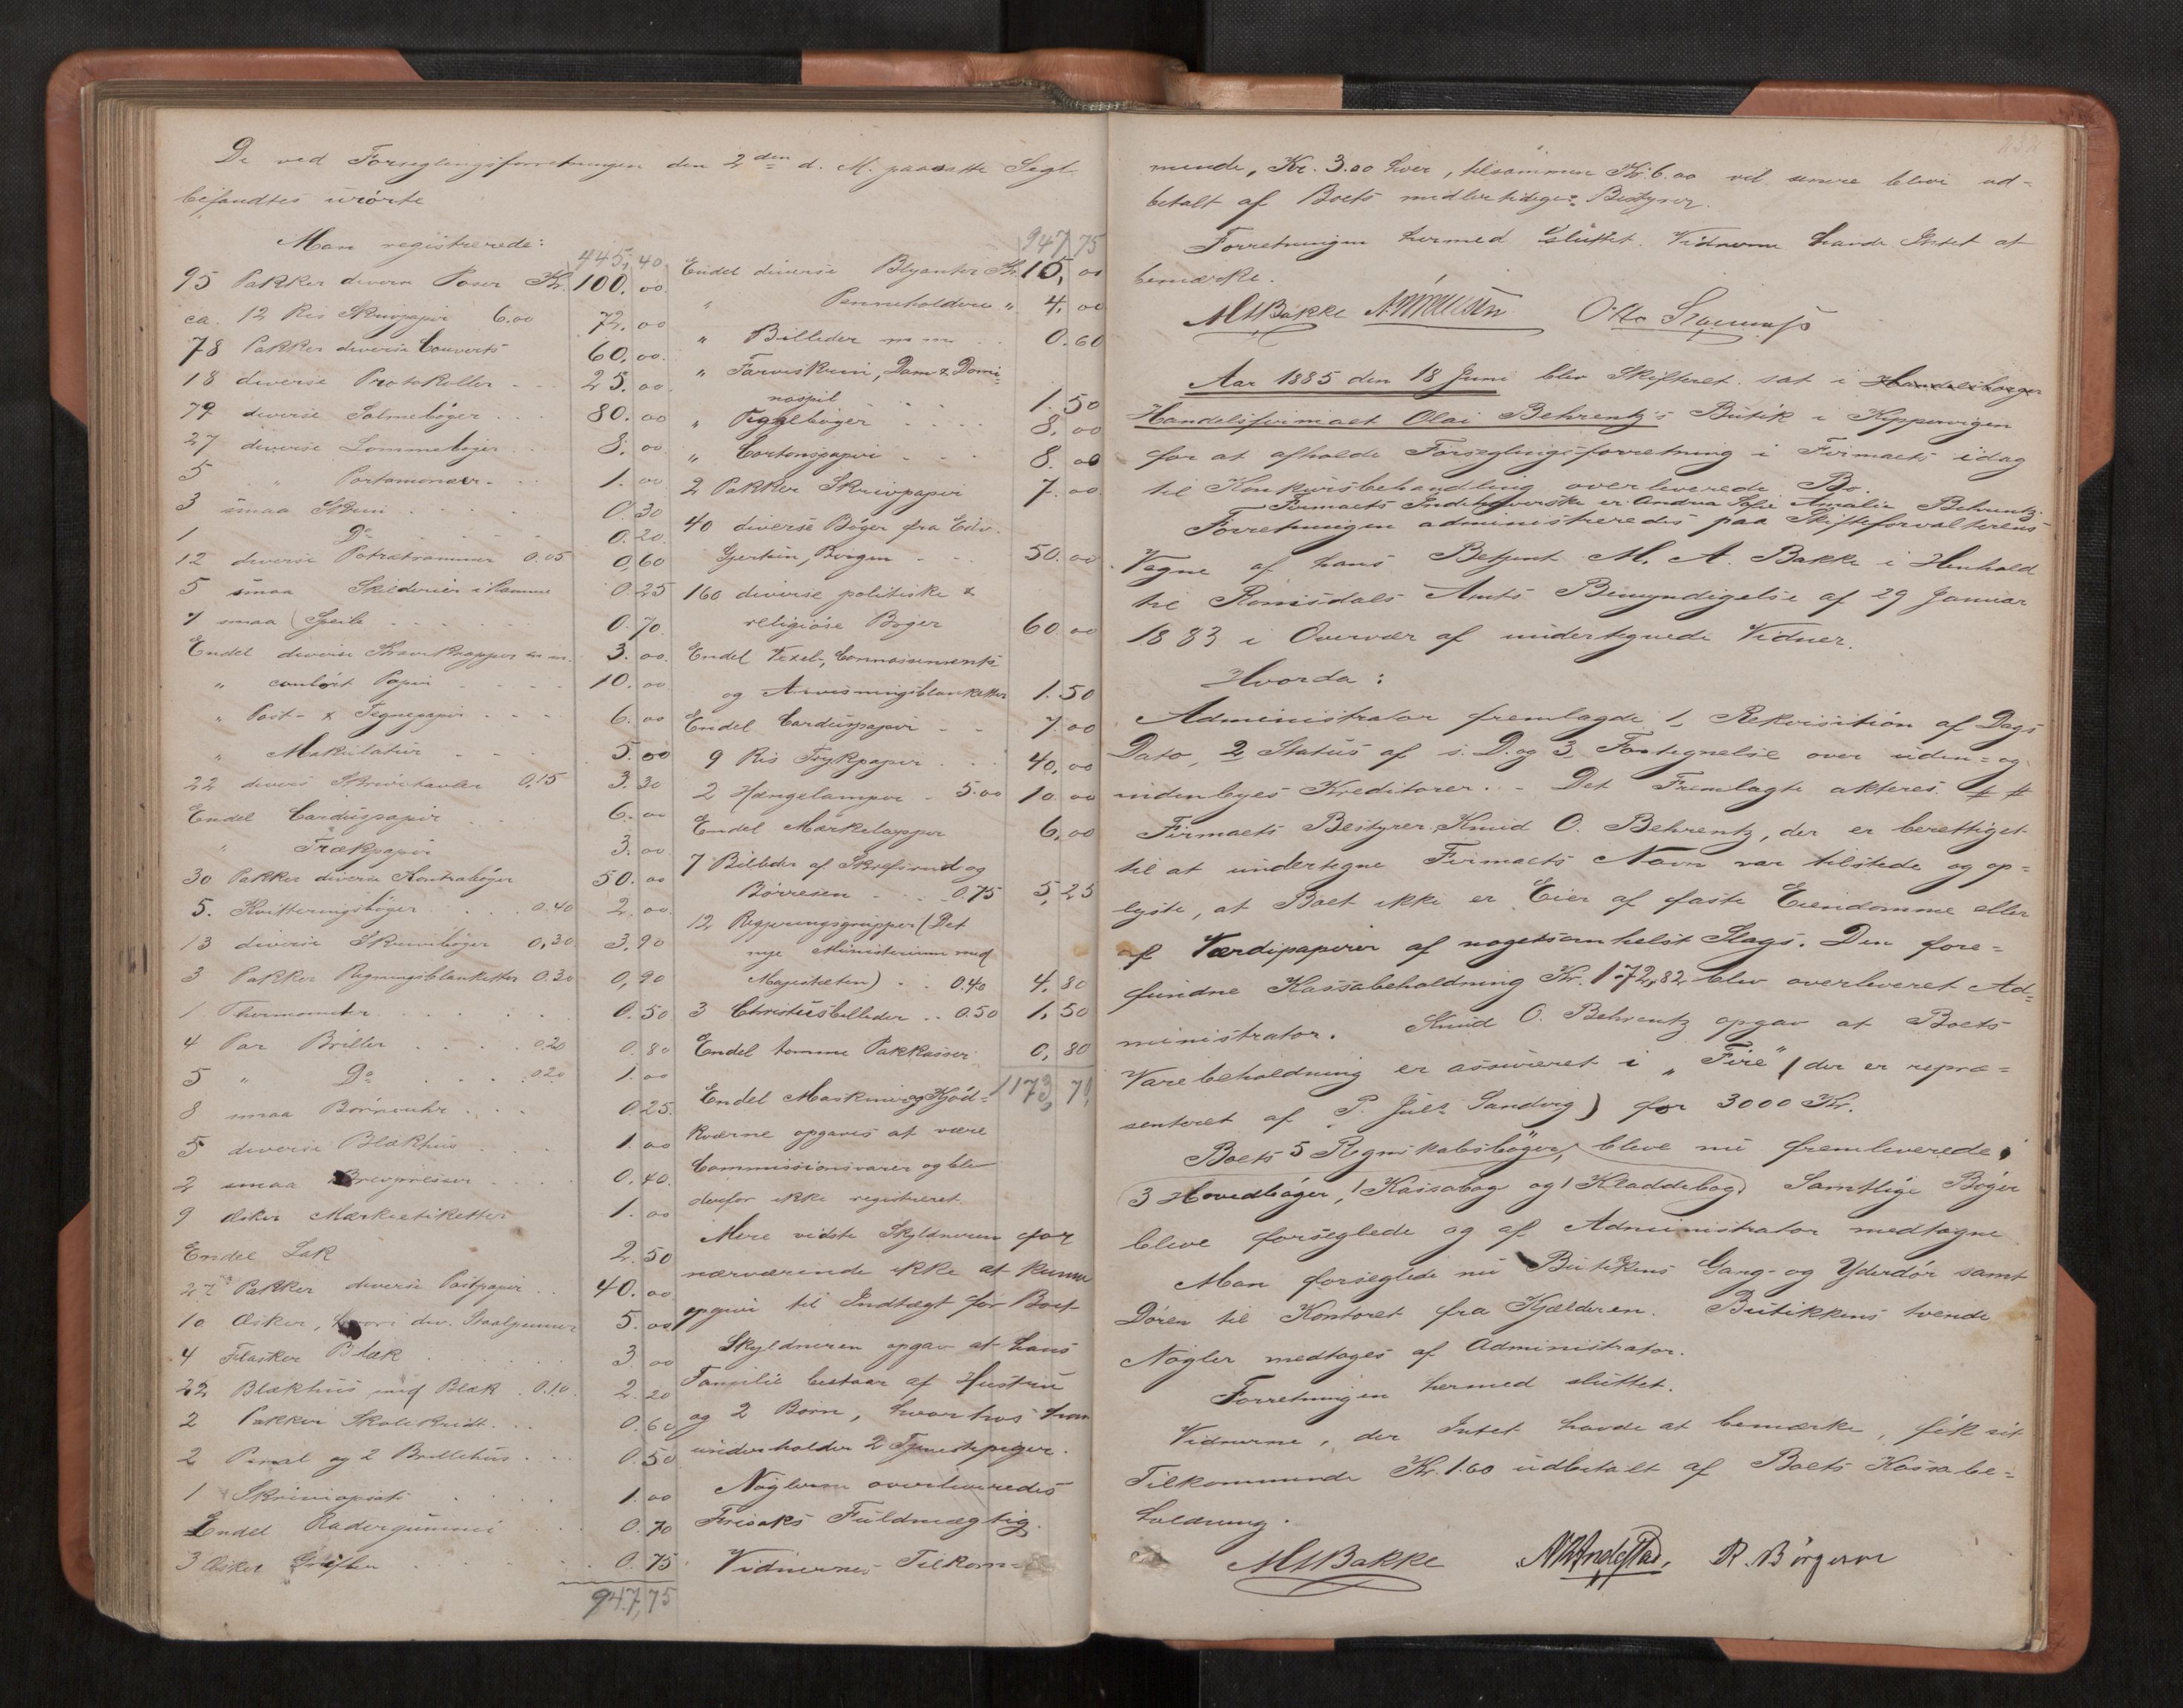 De ved Forseglingsforretningen den 2den d. M. paasatte Segl
befandtes urørte
Man registrerede:
445,40
95 Pakker diverse Poser Kr. 100.00
ca. 12 Ris Skrivpapir 6.00 72.00
78 Pakker diverse Couverts 60.00
18 diverse Protokoller 25.00
79 diverse Salmebøger 80.00
27 diverse Lommebøger 8.00
5 " Portemonæer 1.00
3 smaa Etuui 0.30
1 Do 0.20
12 diverse Potrætrammer 0.05 0,60
5 smaa Skilderier i Ramme 0.25
7 smaa Speile 0.70
Endel diverse Kraveknapper m.m. 3.00
" coulørt Papir 10.00
" Post- & Tegnepapir 6.00
" Makulatur 5.00
22 divers Skrivetavler 0,15 3.30
Endel Carduspapir 6.00
" Trækpapir 3.00
30 Pakker diverse Kontrabøger 50.00
5. Kvitteringsbøger 0.40 2.00
13 diverse Skrivebøger 0,30 3,90
3 Pakker Regningsblanketter 0.30 0,90
1 Thermometer 0.50
4 Par Briller 0.20 0.80
5 " Do 0.20 1.00
8 smaa Børneuhr 0.25
5 diverse Blækhus 1.00
2 smaa Brevpresser 0.40
9 Æsker Mærkeetiketter 1.00
Endel Lak 2.50
27 Pakker diverse Postpapir 40.00
10 Æsker, div. Staalpenner 5.00
4 Flasker Blæk 3.00
22 Blækhus med Blæk 0.10 2.20
2 Pakker Skolekridt 0.60
2 Penal og 2 Brillehus 0.50
1 Skriveapirat 1.00
Endel Radergummi 0.70
3 Æsker Grifler 0.75
947,75
947 75
Endel diverse Blyanter Kr. 15,00
" Penneholdere " 4,00
" Billeder m m 0.60
" Farveskrin, Dam & Domi-
nospil 1.50
" Tegglbøger 8,00
" Cartonspapir 8.00
2 Pakker Skrivpapir 7.00
40 diverse Bøger fra Edv.
Gjertsen, Bergen 50.00
160 diverse politiske &
religiøse Bøger 60.00
Endel Vexel-, Connossements
og Anvisningsblanketter 1.50
Endel Carduspapir 7.00
9 Ris Trykpapir 40,00
2 Hængelamper 5.00 10.00
Endel Mærkelapper 6,00
7 Billeder af Skrefsrud og
Børresen 0.75 5,25
12 Regjeringsgrupper (Det
nye Ministerium med
Majestæten) 0.40 4,80
3 Christusbilleder 0.50 1,50
Endel tomme Pakkasser 0,80
1173,70
Endel Maskiner og Kjød-
kværne opgaves at være
Commissionsvarer og blev
derfor ikke registreret
Mere vidste Skyldneren for
nærværende ikke at kunne
opgive til Indtægt for Boet
Skyldneren opgav at hans
Familie bestaar af Hustru
og 2 Børn, hvorhos han
underholder 2 Tjenestepiger.
Nøglerne overleveredes
Frisaks Fuldmægtig.
Vidnernes Tilkom-
232
mende, Kr. 3.00 hver, tilsammen Kr. 6.00 vil senere blive ud-
betalt af Boets midlertidige Bestyrer.
Forretningen hermed sluttet. Vidnerne havde Intet at
bemærke.
MABakke Otto
Aar 1885 den 18 Juni blev Skifteret sat i Handelsborger
Handelsfirmaet Olai Behrentz's Butik i Kippervigen
for at afholde Forseglingsforretning i Firmaets idag
til Konkursbehandling overleverede Bo.
Firmaets Indehaverske er Andrea Sofie Amalie Behrentz.
Forretningen administreredes paa Skifteforvalterens
Vegne af hans Betjent M. A. Bakke i Henhold
til Romsdals Amts Bemyndigelse af 29 Januar
1883 i Overvær af undertegnede Vidner.
Hvorda:
Administrator fremlagde 1, Rekvisition af Dags
Dato, 2 Status af s. D. og 3 Fortegnelse over uden- og
indenbyes Kreditorer. - Det Fremlagte akteres.
Firmaets Bestyrer Knud O. Behrentz, der er berettiget
til at undertegne Firmaets Navn var tilstede og op-
lyste, at Boet ikke er Eier af faste Eiendomme eller
af Værdipapirer af nogetsomhelst Slags. Den fore-
fundne Kassabeholdning Kr. 172,82 blev overleveret Ad-
ministrator. Knud O. Behrentz opgav at Boets
Varebeholdning er assureret i "Fire" (der er repræ-
senteret af P. Juls Sandvig) for 3000 Kr.
Boets 5 Regnskabsbøger, bleve nu fremleverede.
3 Hovedbøger, 1 Kassabog og 1 Kladdebog. Samtlige Bøger
bleve forseglede og af Administrator medtagne
Man forseglede nu Butikens Gang- og Yderdør samt
Døren til Kontoret fra Kjælderen. Butikkens tvende
Nøgler medtages af Administrator.
Forretningen hermed sluttet.
Vidnerne, der Intet havde at bemærke, fik sit
Tilkommende Kr. 1.60 udbetalt af Boets Kassabe-
holdning.
MABakke R. Børgesen